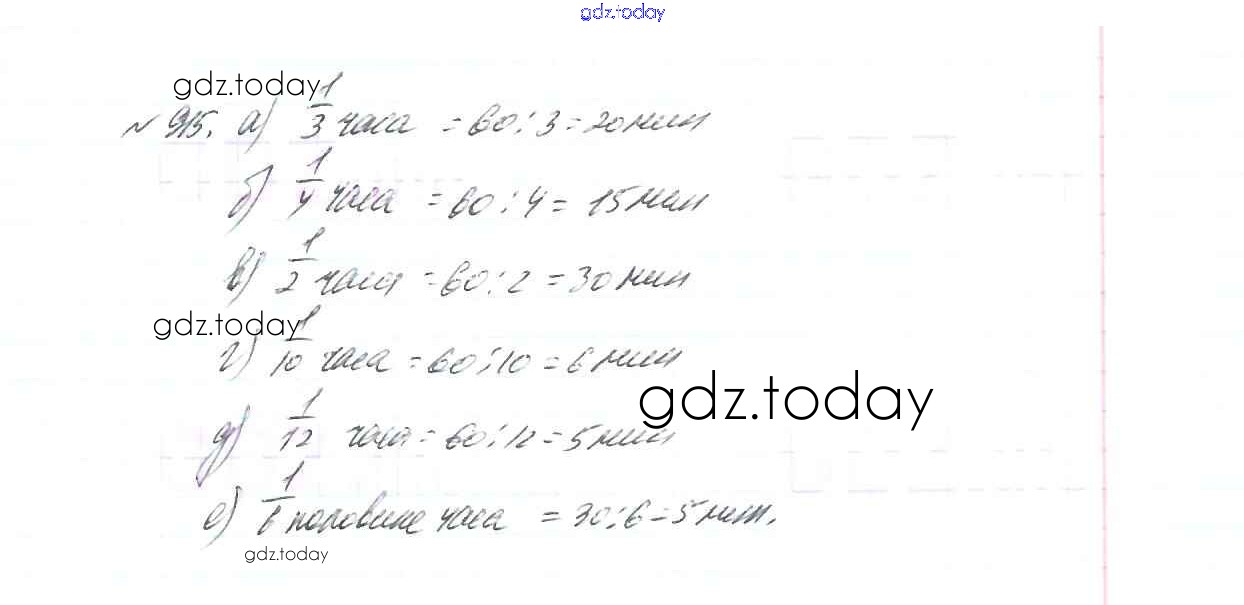 gdz.today
gdz.today
№ 915. а) 1/3 часа = 60 : 3 = 20 мин
б) 1/4 часа = 60 : 4 = 15 мин
в) 1/2 часа = 60 : 2 = 30 мин
gdz.today
г) 1/10 часа = 60 : 10 = 6 мин
gdz.today
д) 1/12 часа = 60 : 12 = 5 мин
е) 1/6 половине часа = 30 : 6 = 5 мин.
gdz.today